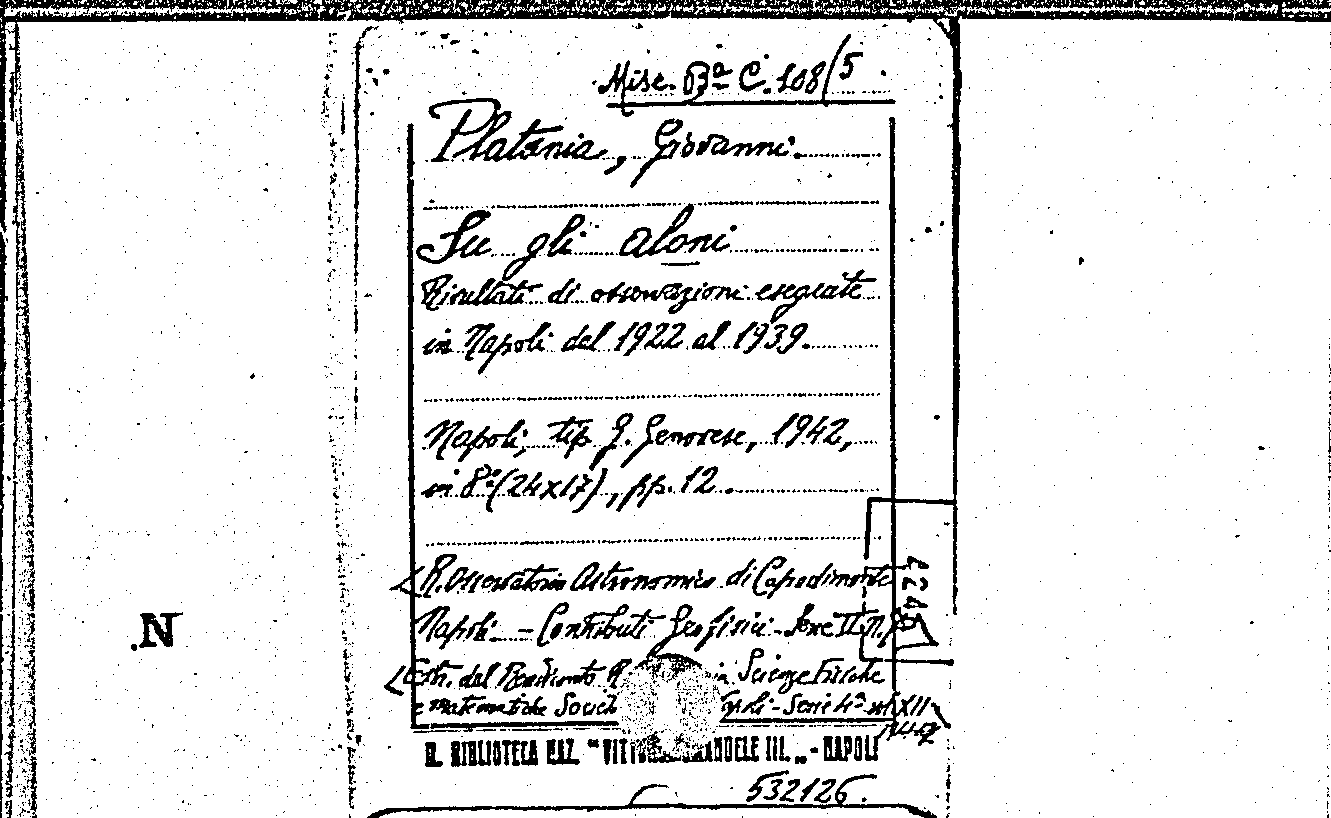 Misc. Bª C. 108/5
Platania, Giovanni.
Su gli aloni
Risultati di osservazioni eseguite
in Napoli dal 1922 al 1939.
Napoli, tip. G. Genovese, 1942,
in 8º (24x17), pp. 12.
R. Osservatorio Astronomico di Capodimonte
Napoli. - Contributi Geofisici - Serie II. n.
Estr. del Rendiconto R. Scienze Fisiche
e matematiche Societ Napoli - Serie 4ª vol XII
1942
R. BIBLIOTECA NAZ. "VITTORIO EMANUELE III." - NAPOLI
532126
N.